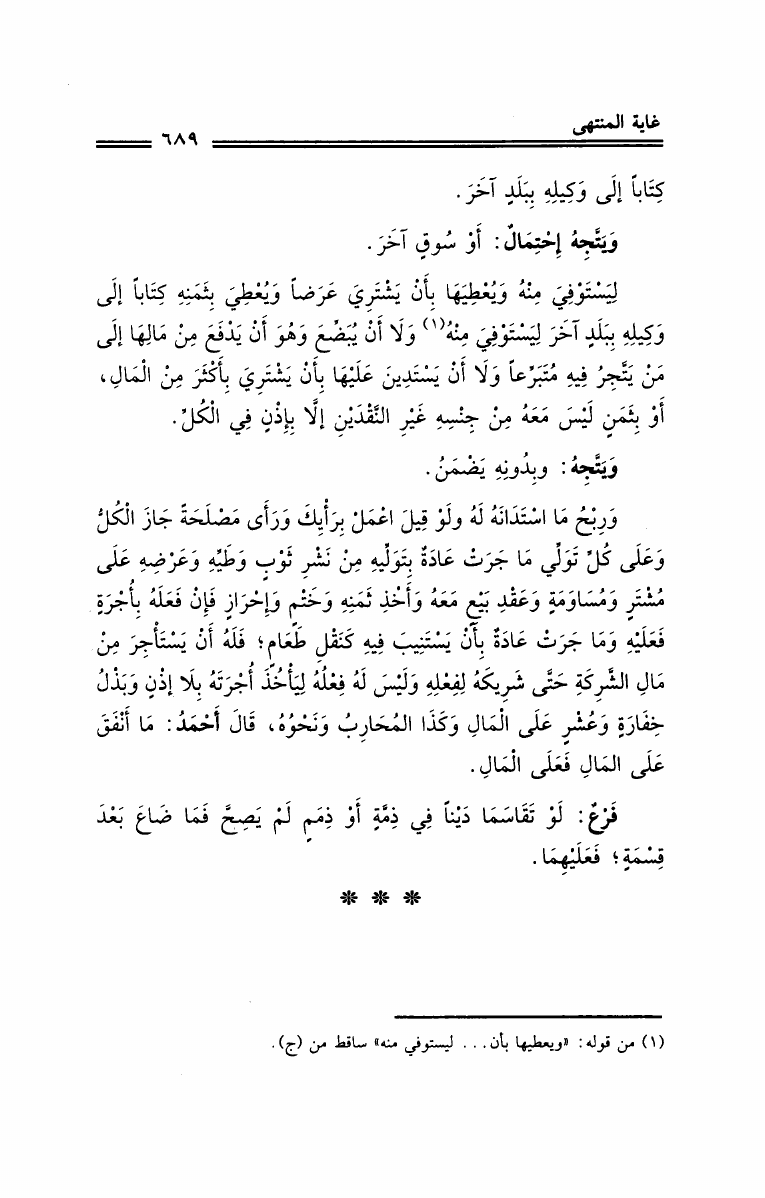 غاية المنتهى
٦٨٩
كِتَاباً إلَى وَكِيلِهِ بِبَلَدٍ آخَرَ.
وَيَتَّجِهُ إحْتِمَالٌ: أَوْ سُوقٍ آخَرَ.
لِيَسْتَوْفِيَ مِنْهُ وَيُعْطِيَهَا بِأَنْ يَشْتَرِيَ عَرَضاً وَيُعْطِيَ بِثَمَنِهِ كِتَاباً إلَى
وَكِيلِهِ بِبَلَدٍ آخَرَ لِيَسْتَوْفِيَ مِنْهُ(١) وَلَا أَنْ يُبَضِّعَ وَهُوَ أَنْ يَدْفَعَ مِنْ مَالِهَا إلَى
مَنْ يَتَّجِرُ فِيهِ مُتَبَرِّعاً وَلَا أَنْ يَسْتَدِينَ عَلَيْهَا بِأَنْ يَشْتَرِيَ بِأَكْثَرَ مِنْ الْمَالِ،
أَوْ بِثَمَنٍ لَيْسَ مَعَهُ مِنْ جِنْسِهِ غَيْرِ النَّقْدَيْنِ إلَّا بِإِذْنٍ فِي الْكُلِّ.
وَيَتَّجِهُ: وبِدُونِهِ يَضْمَنُ.
وَرِبْحُ مَا اسْتَدَانَهُ لَهُ ولَوْ قِيلَ اعْمَلْ بِرَأْيِكَ وَرَأَى مَصْلَحَةً جَازَ الْكُلُّ
وَعَلَى كُلِّ تَوَلِّي مَا جَرَتْ عَادَةٌ بِتَوَلِّيهِ مِنْ نَشْرِ ثَوْبٍ وَطَيِّهِ وَعَرْضِهِ عَلَى
مُشْتَرٍ وَمُسَاوَمَةٍ وَعَقْدِ بَيْعٍ مَعَهُ وَأَخْذِ ثَمَنِهِ وَخَتْمٍ وَإِحْرَازٍ فَإِنْ فَعَلَهُ بِأُجْرَةٍ
فَعَلَيْهِ وَمَا جَرَتْ عَادَةٌ بِأَنْ يَسْتَنِيبَ فِيهِ كَنَقْلِ طَعَامٍ؛ فَلَهُ أَنْ يَسْتَأْجِرَ مِنْ
مَالِ الشَّرِكَةِ حَتَّى شَرِيكَهُ لِفِعْلِهِ وَلَيْسَ لَهُ فِعْلُهُ لِيَأْخُذَ أُجْرَتَهُ بِلَا إذْنٍ وَبَذْلُ
خِفَارَةٍ وَعُشْرٍ عَلَى الْمَالِ وَكَذَا المُحَارِبُ وَنَحْوُهُ، قَالَ أَحْمَدُ: مَا أَنْفَقَ
عَلَى المَالِ فَعَلَى الْمَالِ.
فَرْعٌ: لَوْ تَقَاسَمَا دَيْناً فِي ذِمَّةٍ أَوْ ذِمَمٍ لَمْ يَصِحَّ فَمَا ضَاعَ بَعْدَ
قِسْمَةٍ؛ فَعَلَيْهِمَا.
* * *
(١) من قوله: «ويعطيها بأن... ليستوفي منه» ساقط من (ج).